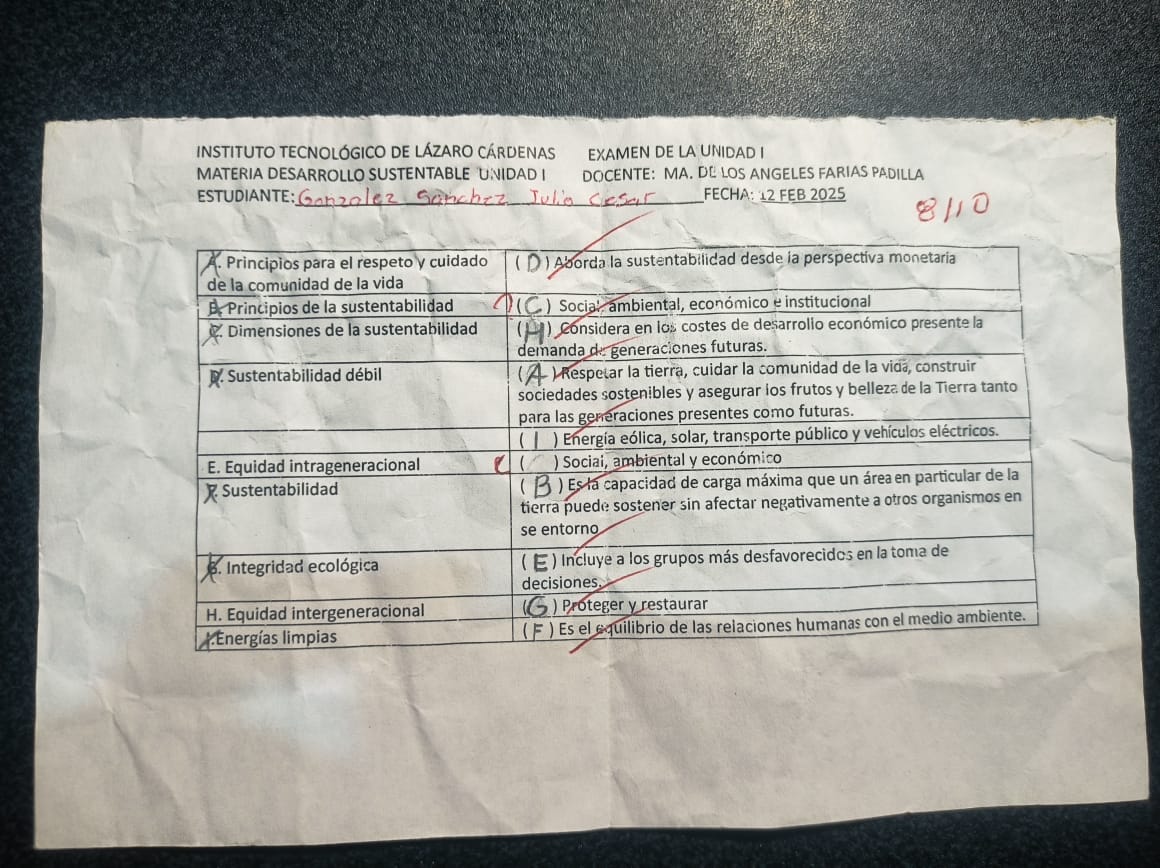 INSTITUTO TECNOLÓGICO DE LÁZARO CÁRDENAS EXAMEN DE LA UNIDAD I
MATERIA DESARROLLO SUSTENTABLE UNIDAD I DOCENTE: MA. DE LOS ANGELES FARIAS PADILLA
ESTUDIANTE: Gonzalez Sanchez Julio Cesar FECHA: 12 FEB 2025
8/10
A. Principios para el respeto y cuidado
de la comunidad de la vida
(D) Aborda la sustentabilidad desde la perspectiva monetaria
B. Principios de la sustentabilidad
(C) Social, ambiental, económico e institucional
C. Dimensiones de la sustentabilidad
(H) Considera en los costes de desarrollo económico presente la
demanda de generaciones futuras.
D. Sustentabilidad débil
(A) Respetar la tierra, cuidar la comunidad de la vida, construir
sociedades sostenibles y asegurar los frutos y belleza de la Tierra tanto
para las generaciones presentes como futuras.
(I) Energía eólica, solar, transporte público y vehículos eléctricos.
E. Equidad intrageneracional
( ) Social, ambiental y económico
F. Sustentabilidad
(B) Es la capacidad de carga máxima que un área en particular de la
tierra puede sostener sin afectar negativamente a otros organismos en
se entorno
G. Integridad ecológica
(E) Incluye a los grupos más desfavorecidos en la toma de
decisiones.
H. Equidad intergeneracional
(G) Proteger y restaurar
I. Energías limpias
(F) Es el equilibrio de las relaciones humanas con el medio ambiente.